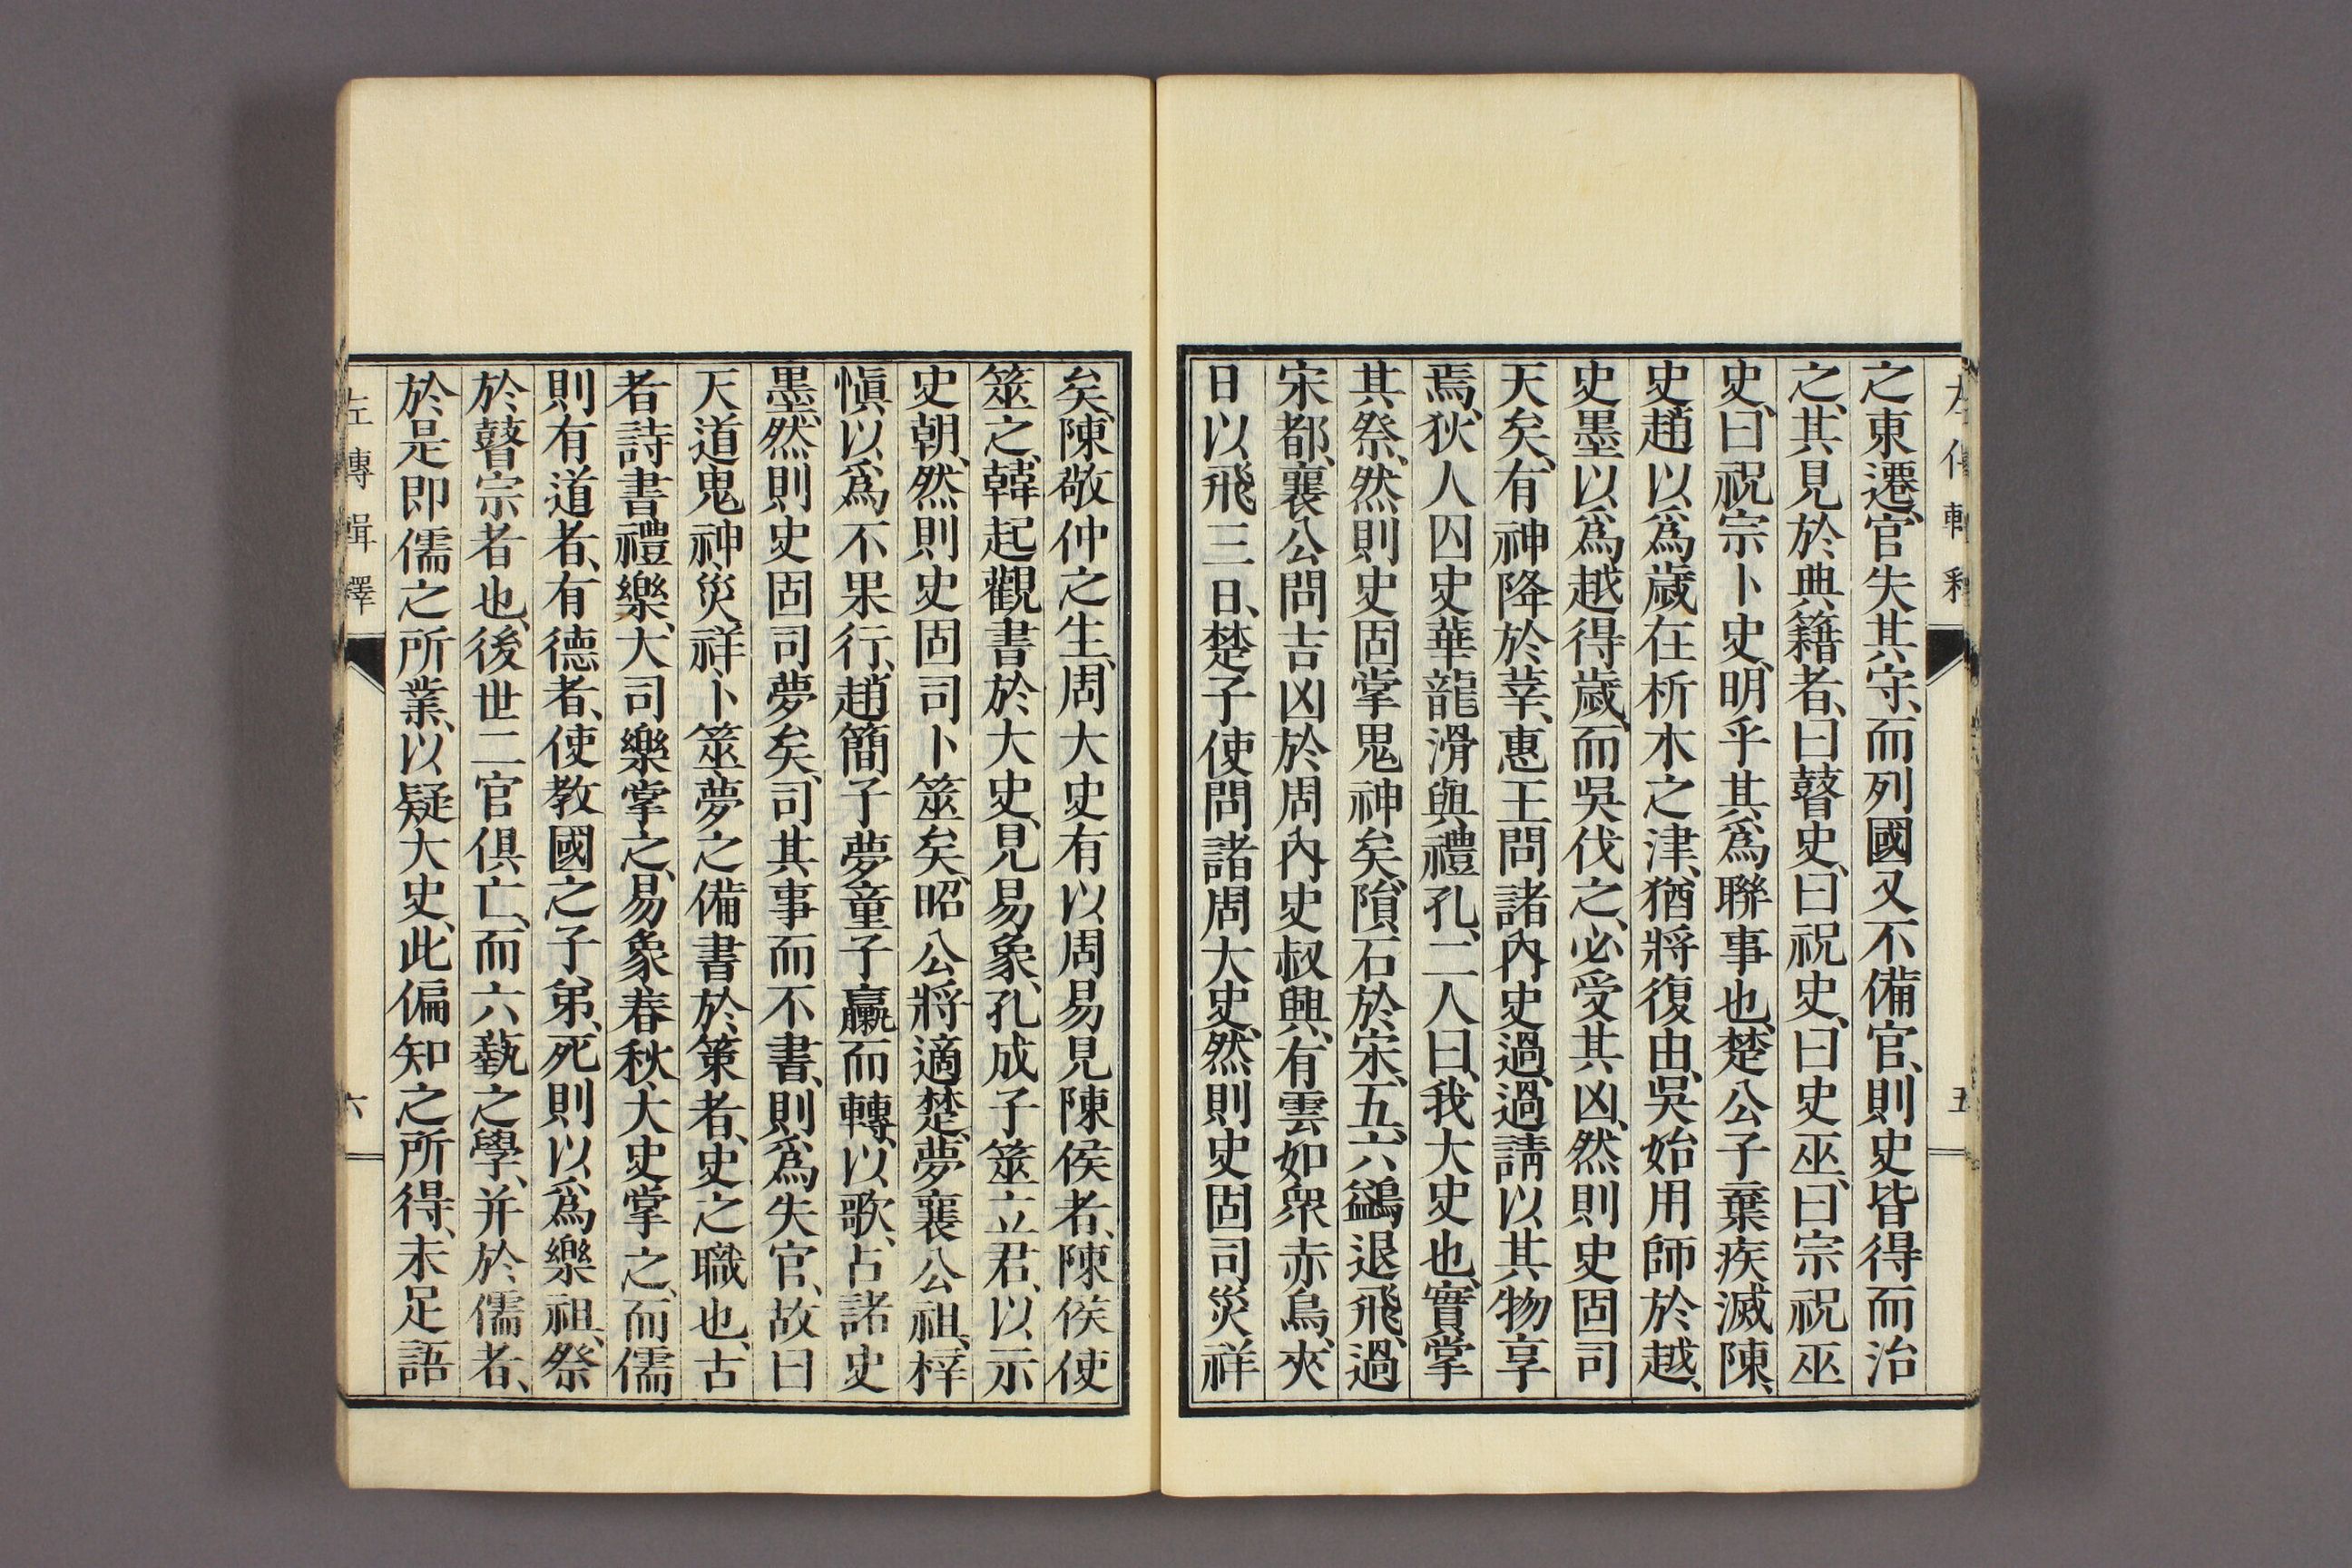 左傳輯釋
五
之東遷、官失其守、而列國又不備官、則史皆得而治
之、其見於典籍者、曰瞽史、曰祝史、曰史巫、曰宗祝巫
史、曰祝宗卜史、明乎其爲聯事也、楚公子棄疾滅陳、
史趙以爲歲在析木之津、猶將復由、吳始用師於越、
史墨以爲越得歲、而吳伐之、必受其凶、然則史固司
天矣、有神降於莘、惠王問諸內史過、過請以其物享
焉、狄人囚史華龍滑與禮孔、二人曰、我大史也、實掌
其祭、然則史固掌鬼神矣、隕石於宋、五、六鷁退飛、過
宋都、襄公問吉凶於周內史叔興、有雲如衆赤烏、夾
日以飛三日、楚子使問諸周大史、然則史固司災祥
矣、陳敬仲之生、周大史有以周易見陳侯者、陳侯使
筮之、韓起觀書於大史、見易象、孔成子筮立君、以示
史朝、然則史固司卜筮矣、昭公將適楚、夢襄公祖、梓
愼以爲不果行、趙簡子夢童子臝而轉、以歌、占諸史
墨、然則史固司夢矣、司其事而不書、則爲失官、故曰
天道鬼神災祥卜筮夢之備書於策者、史之職也、古
者詩書禮樂、大司樂掌之、易象春秋、大史掌之、而儒
則有道者、有德者、使敎國之子弟、死則以爲樂祖、祭
於瞽宗者也、後世二官俱亡、而六藝之學、并於儒者、
於是即儒之所業、以疑大史、此偏知之所得、未足語
左傳輯釋
六